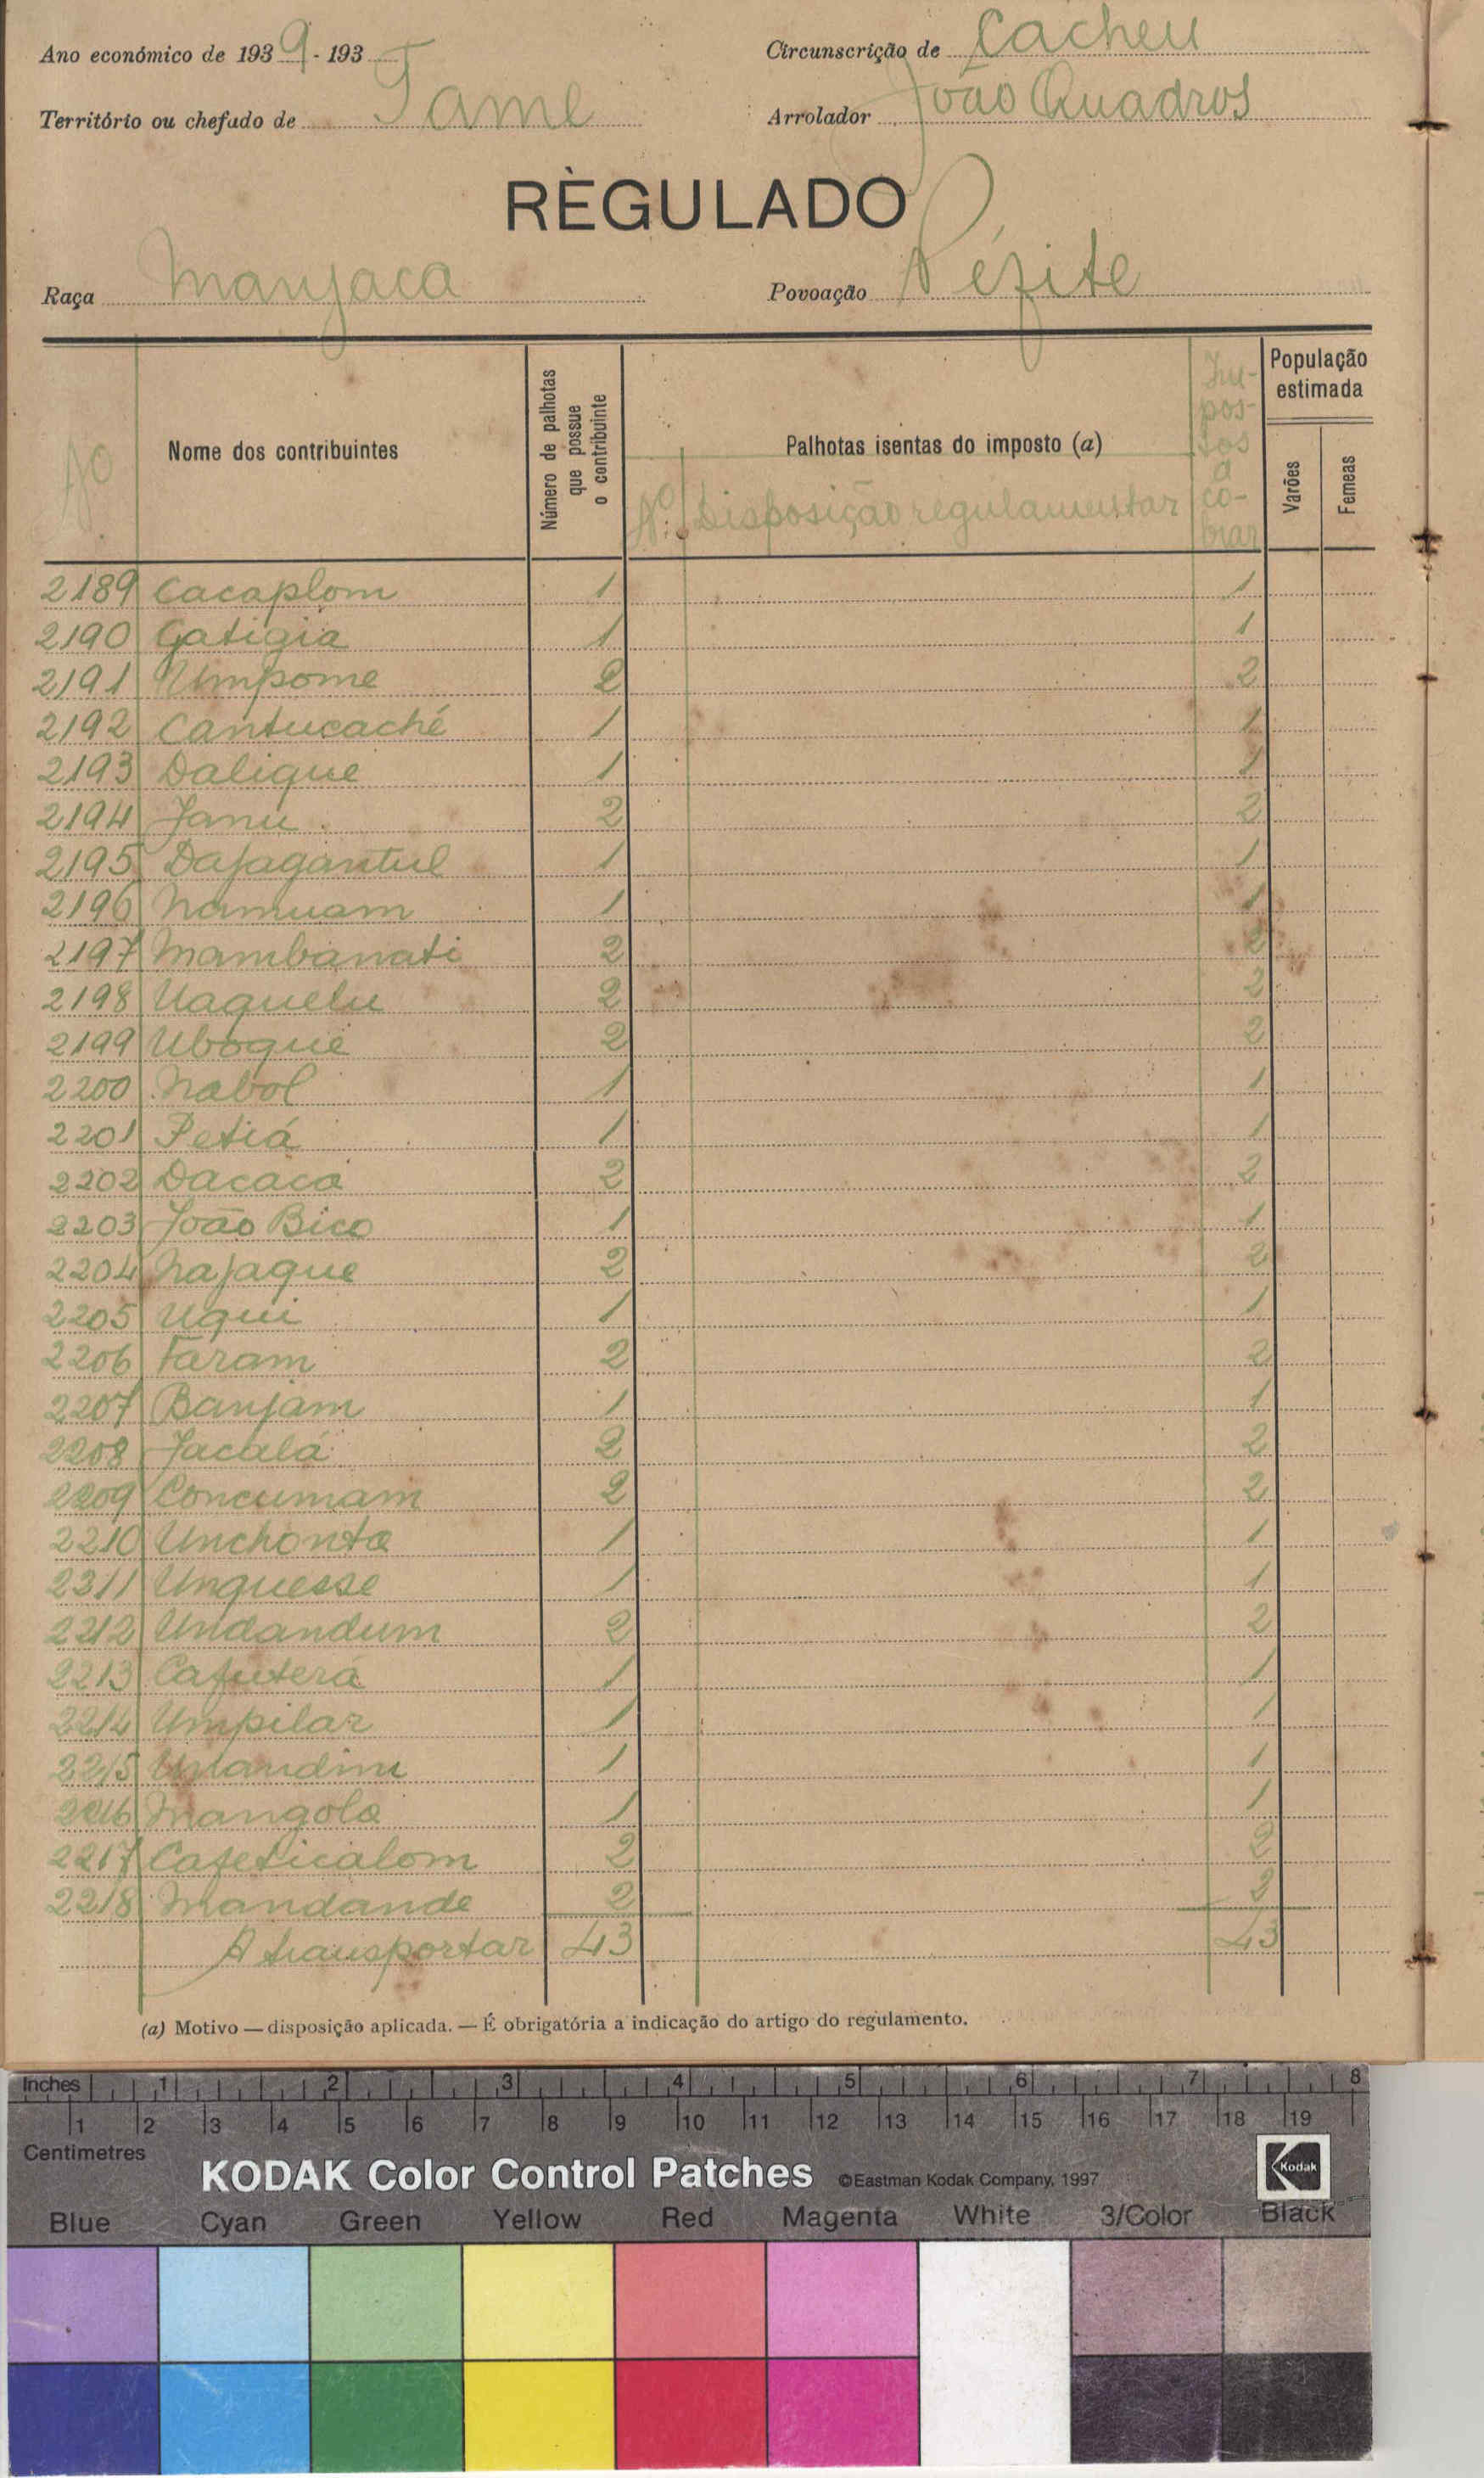 Ano económico de 1939-193 Circunscrição de Cacheu
Território ou chefado de Tame Arrolador João Quadros
RÈGULADO
Raça Manjaca Povoação Pézite
Nº Nome dos contribuintes Número de palhotas que possue o contribuinte Palhotas isentas do imposto (a) Nº Disposição regulamentar Impostos a cobrar População estimada Varões Femeas
2189 Cacaplom 1 1
2190 Gatigia 1 1
2191 Umpome 2 2
2192 Cantucaché 1 1
2193 Dalique 1 1
2194 Janu 2 2
2195 Dajagantul 1 1
2196 Namuam 1 1
2197 Mambanati 2 2
2198 Uaquelu 2 2
2199 Uboque 2 2
2200 Nabol 1 1
2201 Petiá 1 1
2202 Dacaca 2 2
2203 João Bico 1 1
2204 Najaque 2 2
2205 Uqui 1 1
2206 Faram 2 2
2207 Banjam 1 1
2208 Jacalá 2 2
2209 Concumam 2 2
2210 Unchonta 1 1
2311 Unquesse 1 1
2212 Undandum 2 2
2213 Cajuterá 1 1
2214 Umpilar 1 1
2215 1 1
2216 Mangola 1 1
2217 Cajeticalom 2 2
2218 Mandande 2 2
A transportar 43 43
(a) Motivo — disposição aplicada. — É obrigatória a indicação do artigo do regulamento.
Inches 1 2 3 4 5 6 7 8
1 2 3 4 5 6 7 8 9 10 11 12 13 14 15 16 17 18 19
Centimetres
KODAK Color Control Patches ©Eastman Kodak Company, 1997 Kodak
Blue Cyan Green Yellow Red Magenta White 3/Color Black